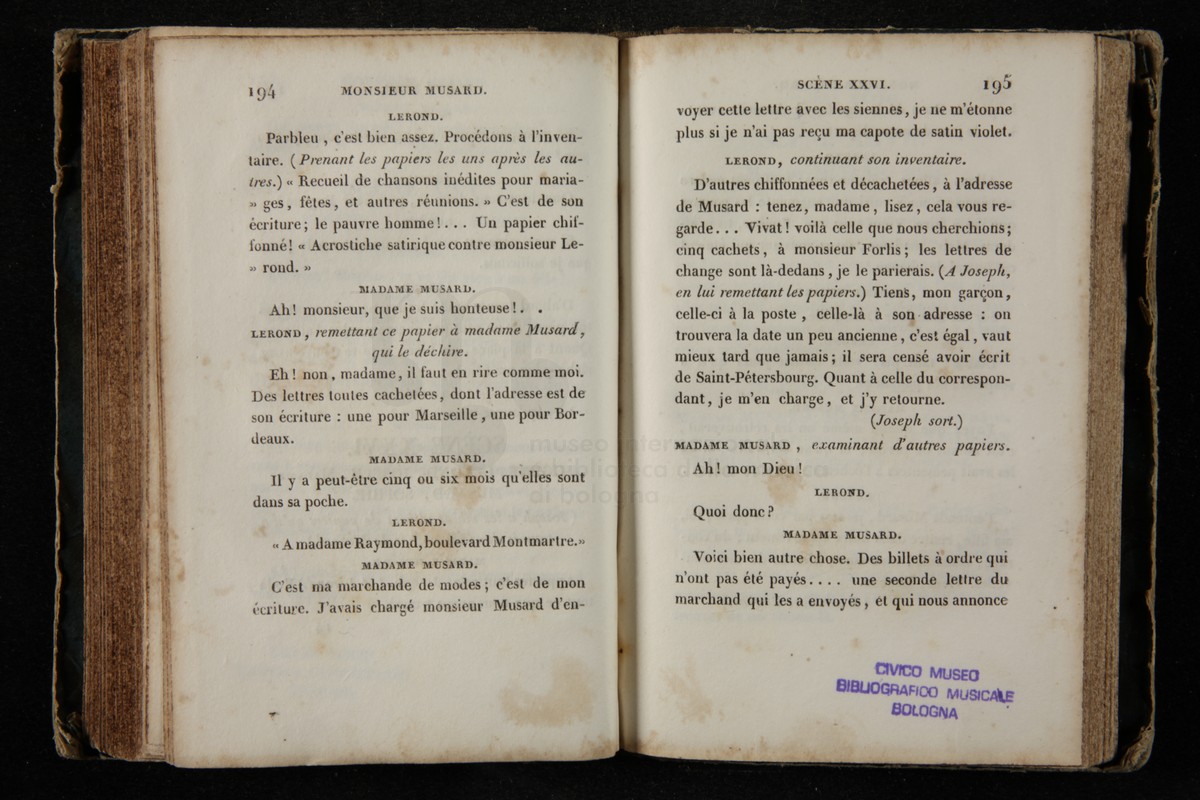 194 MONSIEUR MUSARD.
LEROND.
Parbleu , c'est bien assez. Procédons à l'inven-
taire. ( Prenant les papiers les uns après les au-
tres.) « Recueil de chansons inédites pour maria-
» ges, fêtes, et autres réunions. » C'est de son
écriture; le pauvre homme!... Un papier chif-
fonné! « Acrostiche satirique contre monsieur Le-
» rond. »
MADAME MUSARD.
Ah! monsieur, que je suis honteuse!. .
LEROND, remettant ce papier à madame Musard,
qui le déchire.
Eh! non, madame, il faut en rire comme moi.
Des lettres toutes cachetées, dont l'adresse est de
son écriture : une pour Marseille, une pour Bor-
deaux.
MADAME MUSARD.
Il y a peut-être cinq ou six mois qu'elles sont
dans sa poche.
LEROND.
« A madame Raymond, boulevard Montmartre.»
MADAME MUSARD.
C'est ma marchande de modes; c'est de mon
écriture. J'avais chargé monsieur Musard d'en-
SCÈNE XXVI. 195
voyer cette lettre avec les siennes, je ne m'étonne
plus si je n'ai pas reçu ma capote de satin violet.
LEROND, continuant son inventaire.
D'autres chiffonnées et décachetées, à l'adresse
de Musard : tenez, madame, lisez, cela vous re-
garde... Vivat! voilà celle que nous cherchions;
cinq cachets, à monsieur Forlis; les lettres de
change sont là-dedans, je le parierais. (A Joseph,
en lui remettant les papiers.) Tiens, mon garçon,
celle-ci à la poste, celle-là à son adresse : on
trouvera la date un peu ancienne, c'est égal, vaut
mieux tard que jamais; il sera censé avoir écrit
de Saint-Pétersbourg. Quant à celle du correspon-
dant, je m'en charge, et j'y retourne.
(Joseph sort.)
MADAME MUSARD, examinant d'autres papiers.
Ah! mon Dieu!
LEROND.
Quoi donc?
MADAME MUSARD.
Voici bien autre chose. Des billets à ordre qui
n'ont pas été payés.... une seconde lettre du
marchand qui les a envoyés, et qui nous annonce
CIVICO MUSEO
BIBLIOGRAFICO MUSICALE
BOLOGNA